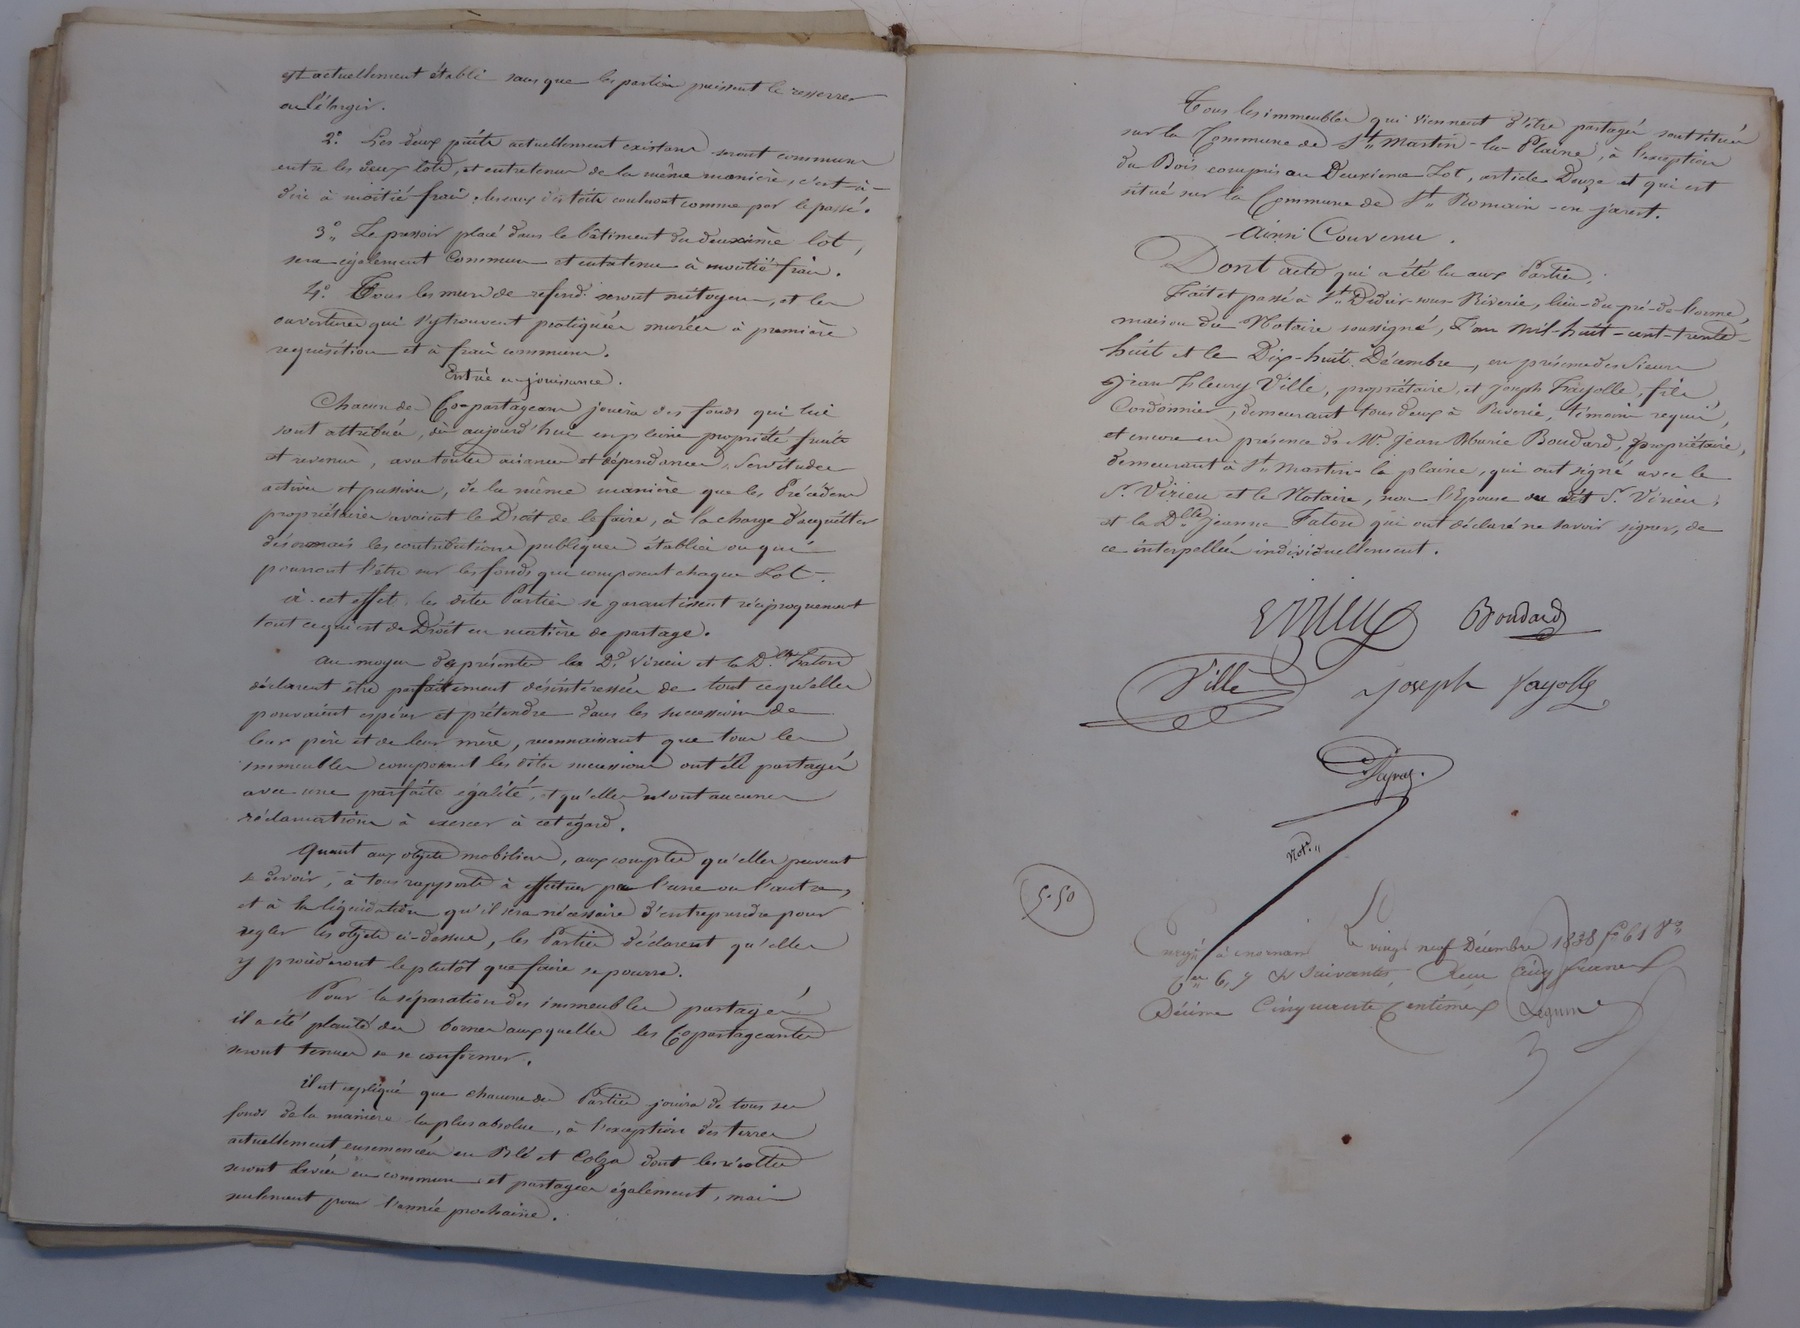 est actuellement établi sans que les parties puissent le resserrer
ou l'élargir.
2° Les deux puits actuellement existans seront communs
entre les deux lots, et entretenus de la même manière, c'est-à-
dire à moitié frais, les eaux des toits couleront comme par le passé.
3° Le pressoir placé dans le bâtiment du deuxième lot,
sera également commun et entretenu à moitié frais.
4° Tous les murs de refend seront mitoyens, et les
ouvertures qui s'y trouvent pratiquées murées à première
requisition et à frais communs.
Entrée en jouissance.
Chacun des Co-partageans jouira des fonds qui lui
sont attribués, dès aujourd'hui en pleine propriété fruits
et revenus, avec toutes aisances et dépendances, Servitudes
actives et passives, de la même manière que les Précédens
propriétaires avaient le Droit de le faire, à la charge d'acquitter
désormais les contributions publiques établies ou qui
pourront l'être sur les fonds qui composent chaque Lot.
à cet effet, les dites Parties se garantissent réciproquement
tout ce qui est de Droit en matière de partage.
au moyen des présentes les De Virieu et la Dlle Faton
déclarent être parfaitement désintéressées de tout ce qu'elles
pouvaient espérer et prétendre dans les successions de
leur père et de leur mère, reconnaissant que tous les
immeubles composant les dites successions ont été partagés
avec une parfaite égalité, et qu'elles n'ont aucunes
réclamations à exercer à cet égard.
Quant aux objets mobiliers, aux comptes qu'elles peuvent
se devoir, à tous rapports à effectuer par l'une ou l'autre,
et à la liquidation qu'il sera nécessaire d'entreprendre pour
regler les objets ci-dessus, les Parties déclarent qu'elles
y procéderont le plutôt que faire se pourra.
Pour la séparation des immeubles partagés
il a été planté des bornes auxquelles les Copartageantes
seront tenues de se conformer.
il est expliqué que chacune des Parties jouira de tous ses
fonds de la manière la plus absolue, à l'exception des terres
actuellement ensemencées en Blé et Colza dont les récoltes
seront levées en commun et partagées également, mais
seulement pour l'année prochaine.
Tous les immeubles qui viennent d'être partagés sont situés
sur la Commune de St Martin-la-Plaine, à l'exception
du Bois compris au Deuxieme Lot, article Douze et qui est
situé sur la Commune de St Romain-en-jarest.
Ainsi Convenu.
Dont acte qui a été lu aux Parties,
Fait et passé à St Didier-sous-Riverie, lieu-du-pré-de-l'orme,
maison du Notaire soussigné, L'an mil-huit-cent-trente-
huit et le Dix-huit Décembre, en présence des Sieurs
Jean Fleury Ville, propriétaire, et Joseph Fayolle, fils
Cordonnier, demeurant tous deux à Riverie, témoins requis,
et encore en présence de Mr Jean Marie Boudard, propriétaire,
demeurant à St Martin-la plaine, qui ont signé avec le
Sr Virieu et le Notaire, non l'Epouse du dit Sr Virieu,
et la Dlle Jeanne Faton qui ont déclaré ne savoir signer, de
ce interpellées individuellement.
Virieu Boudard
Ville Joseph fayolle
Notre
5-50
Enregé à mornant Le vingt neuf Décembre 1838 fo 61 Vo
Ces 6, 7 & Suivantes, Reçu Cinq francs
Décime Cinquante Centimes